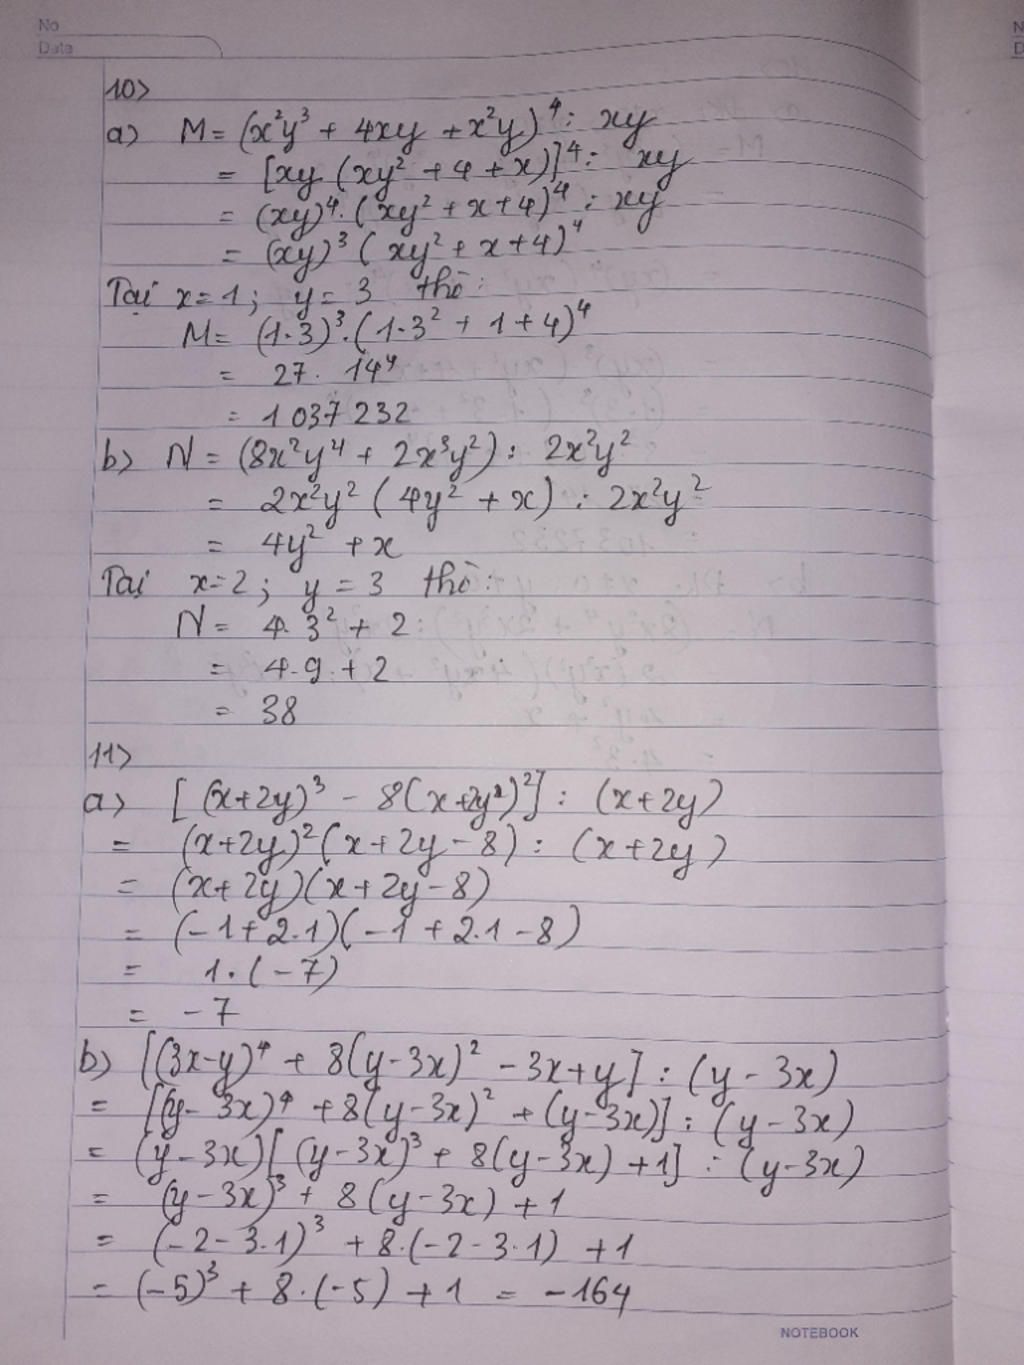 No
Date
10>
a) M = (x²y³ + 4xy + x²y)⁴ : xy
= [xy (xy² + 4 + x)]⁴ : xy
= (xy)⁴. (xy² + x + 4)⁴ : xy
= (xy)³ (xy² + x + 4)⁴
Tại x = 1; y = 3 thì:
M = (1.3)³.(1.3² + 1 + 4)⁴
= 27. 14⁴
= 1 037 232
b) N = (8x²y⁴ + 2x³y²) : 2x²y²
= 2x²y² (4y² + x) : 2x²y²
= 4y² + x
Tại x = 2; y = 3 thì:
N = 4.3² + 2
= 4.9 + 2
= 38
11>
a) [(x+2y)³ - 8(x+2y)²] : (x+2y)
= (x+2y)²(x+2y-8) : (x+2y)
= (x+2y)(x+2y-8)
= (-1+2.1)(-1+2.1-8)
= 1.(-7)
= -7
b) [(3x-y)⁴ + 8(y-3x)² - 3x+y] : (y-3x)
= [(y-3x)⁴ + 8(y-3x)² + (y-3x)] : (y-3x)
= (y-3x)[(y-3x)³ + 8(y-3x) + 1] : (y-3x)
= (y-3x)³ + 8(y-3x) + 1
= (-2-3.1)³ + 8.(-2-3.1) + 1
= (-5)³ + 8.(-5) + 1 = -164
NOTEBOOK